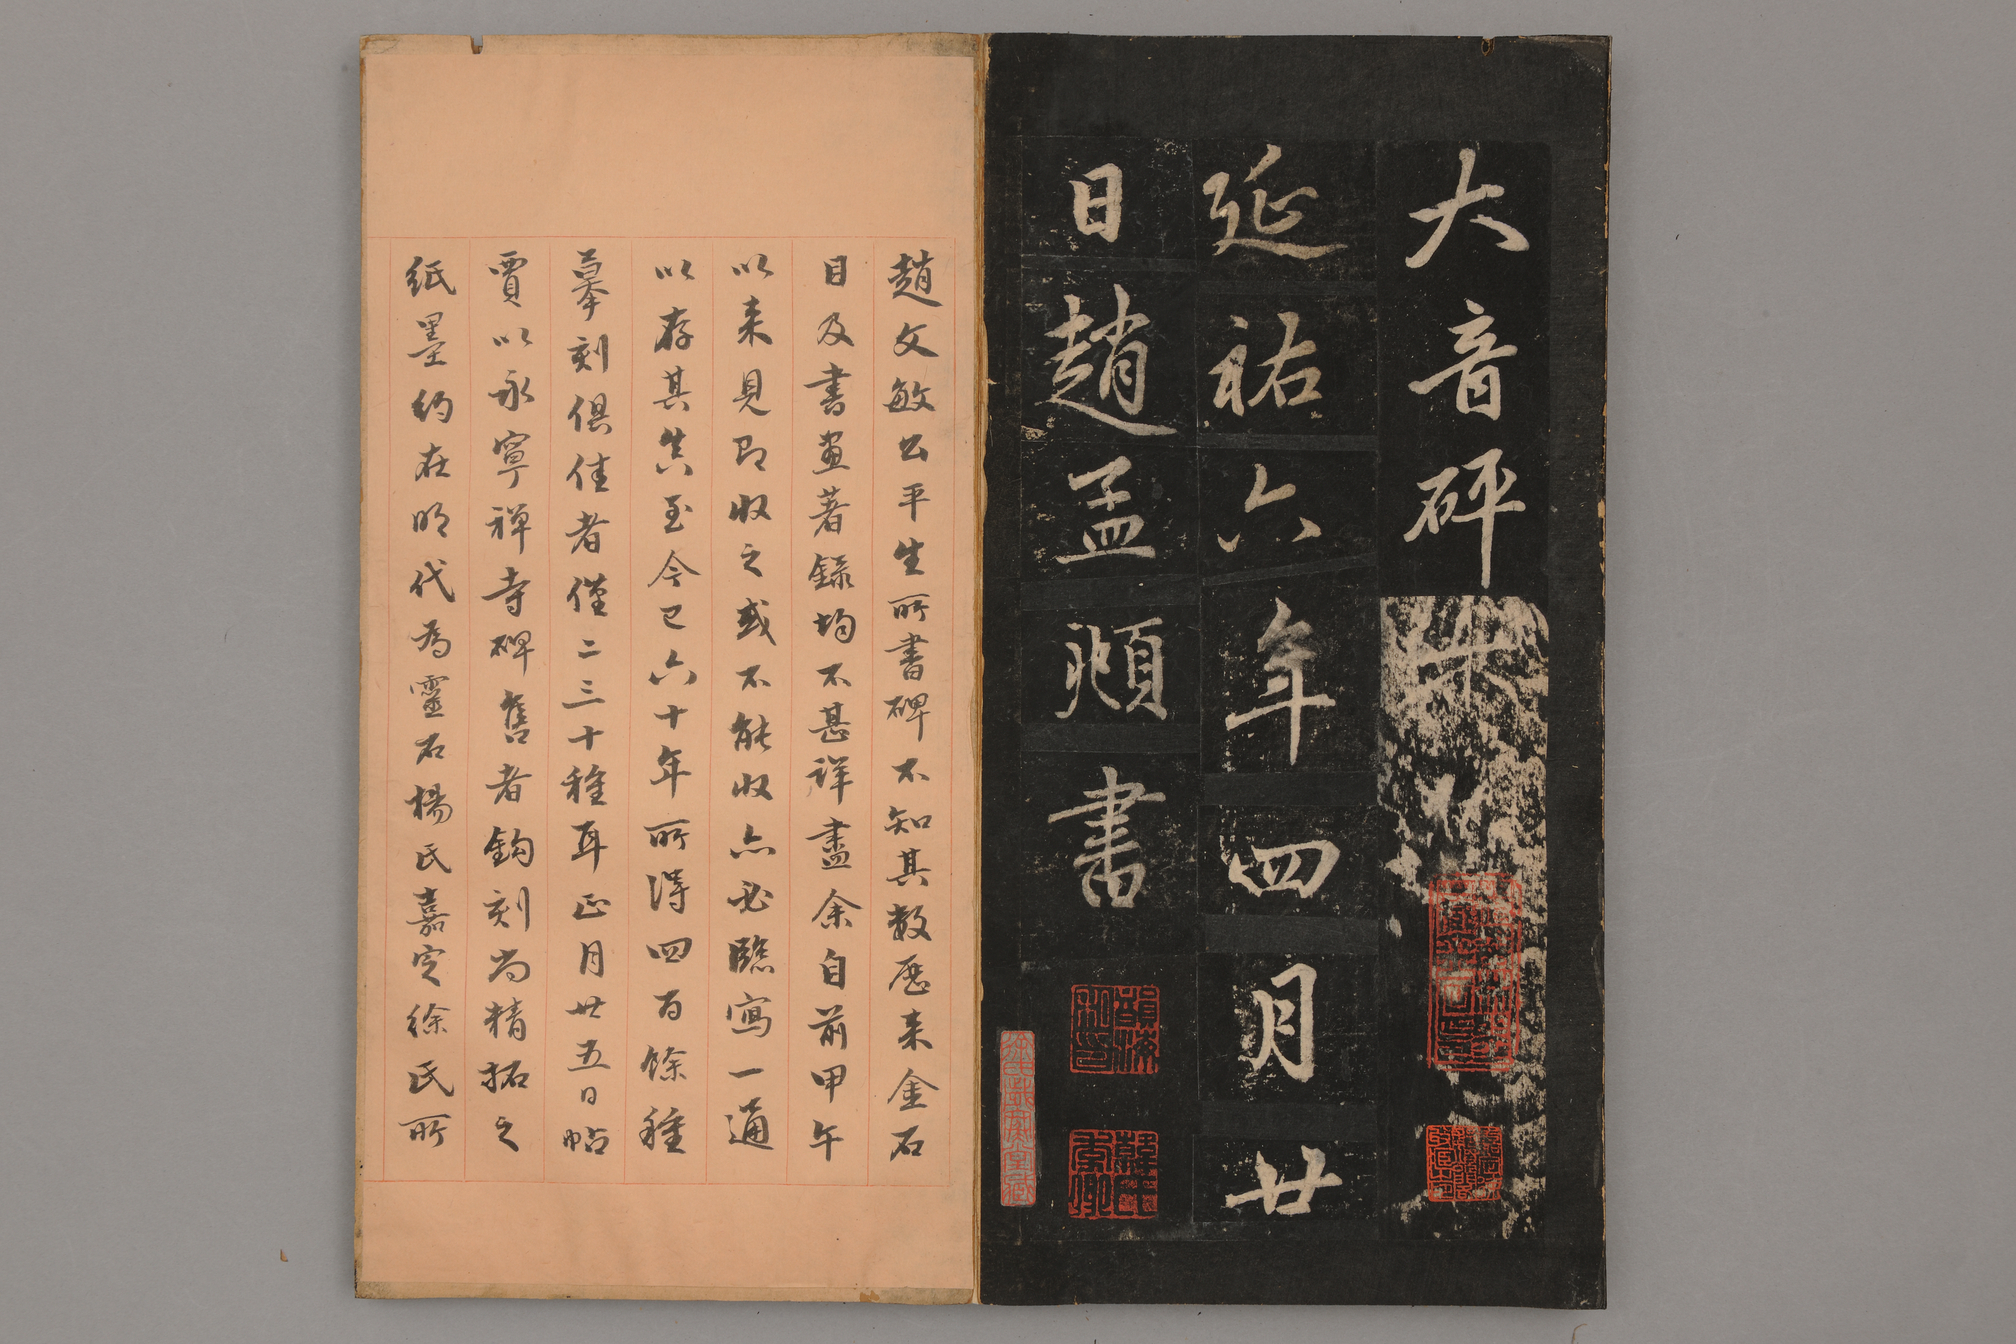 大音砰
延祐六年四月廿
日趙孟頫書
趙文敏公平生所書碑不知其數歷来金石
目及書畫著録均不甚詳盡余自前甲午
以来見即收之或不能收亦必臨寫一通
以存其真至今已六十年所得四百餘種
摹刻俱佳者僅二三十種耳正月廿五日帖
賈以永寧禅寺碑售者鈎刻尚精拓之
紙墨約在明代為靈石楊氏嘉定徐氏所